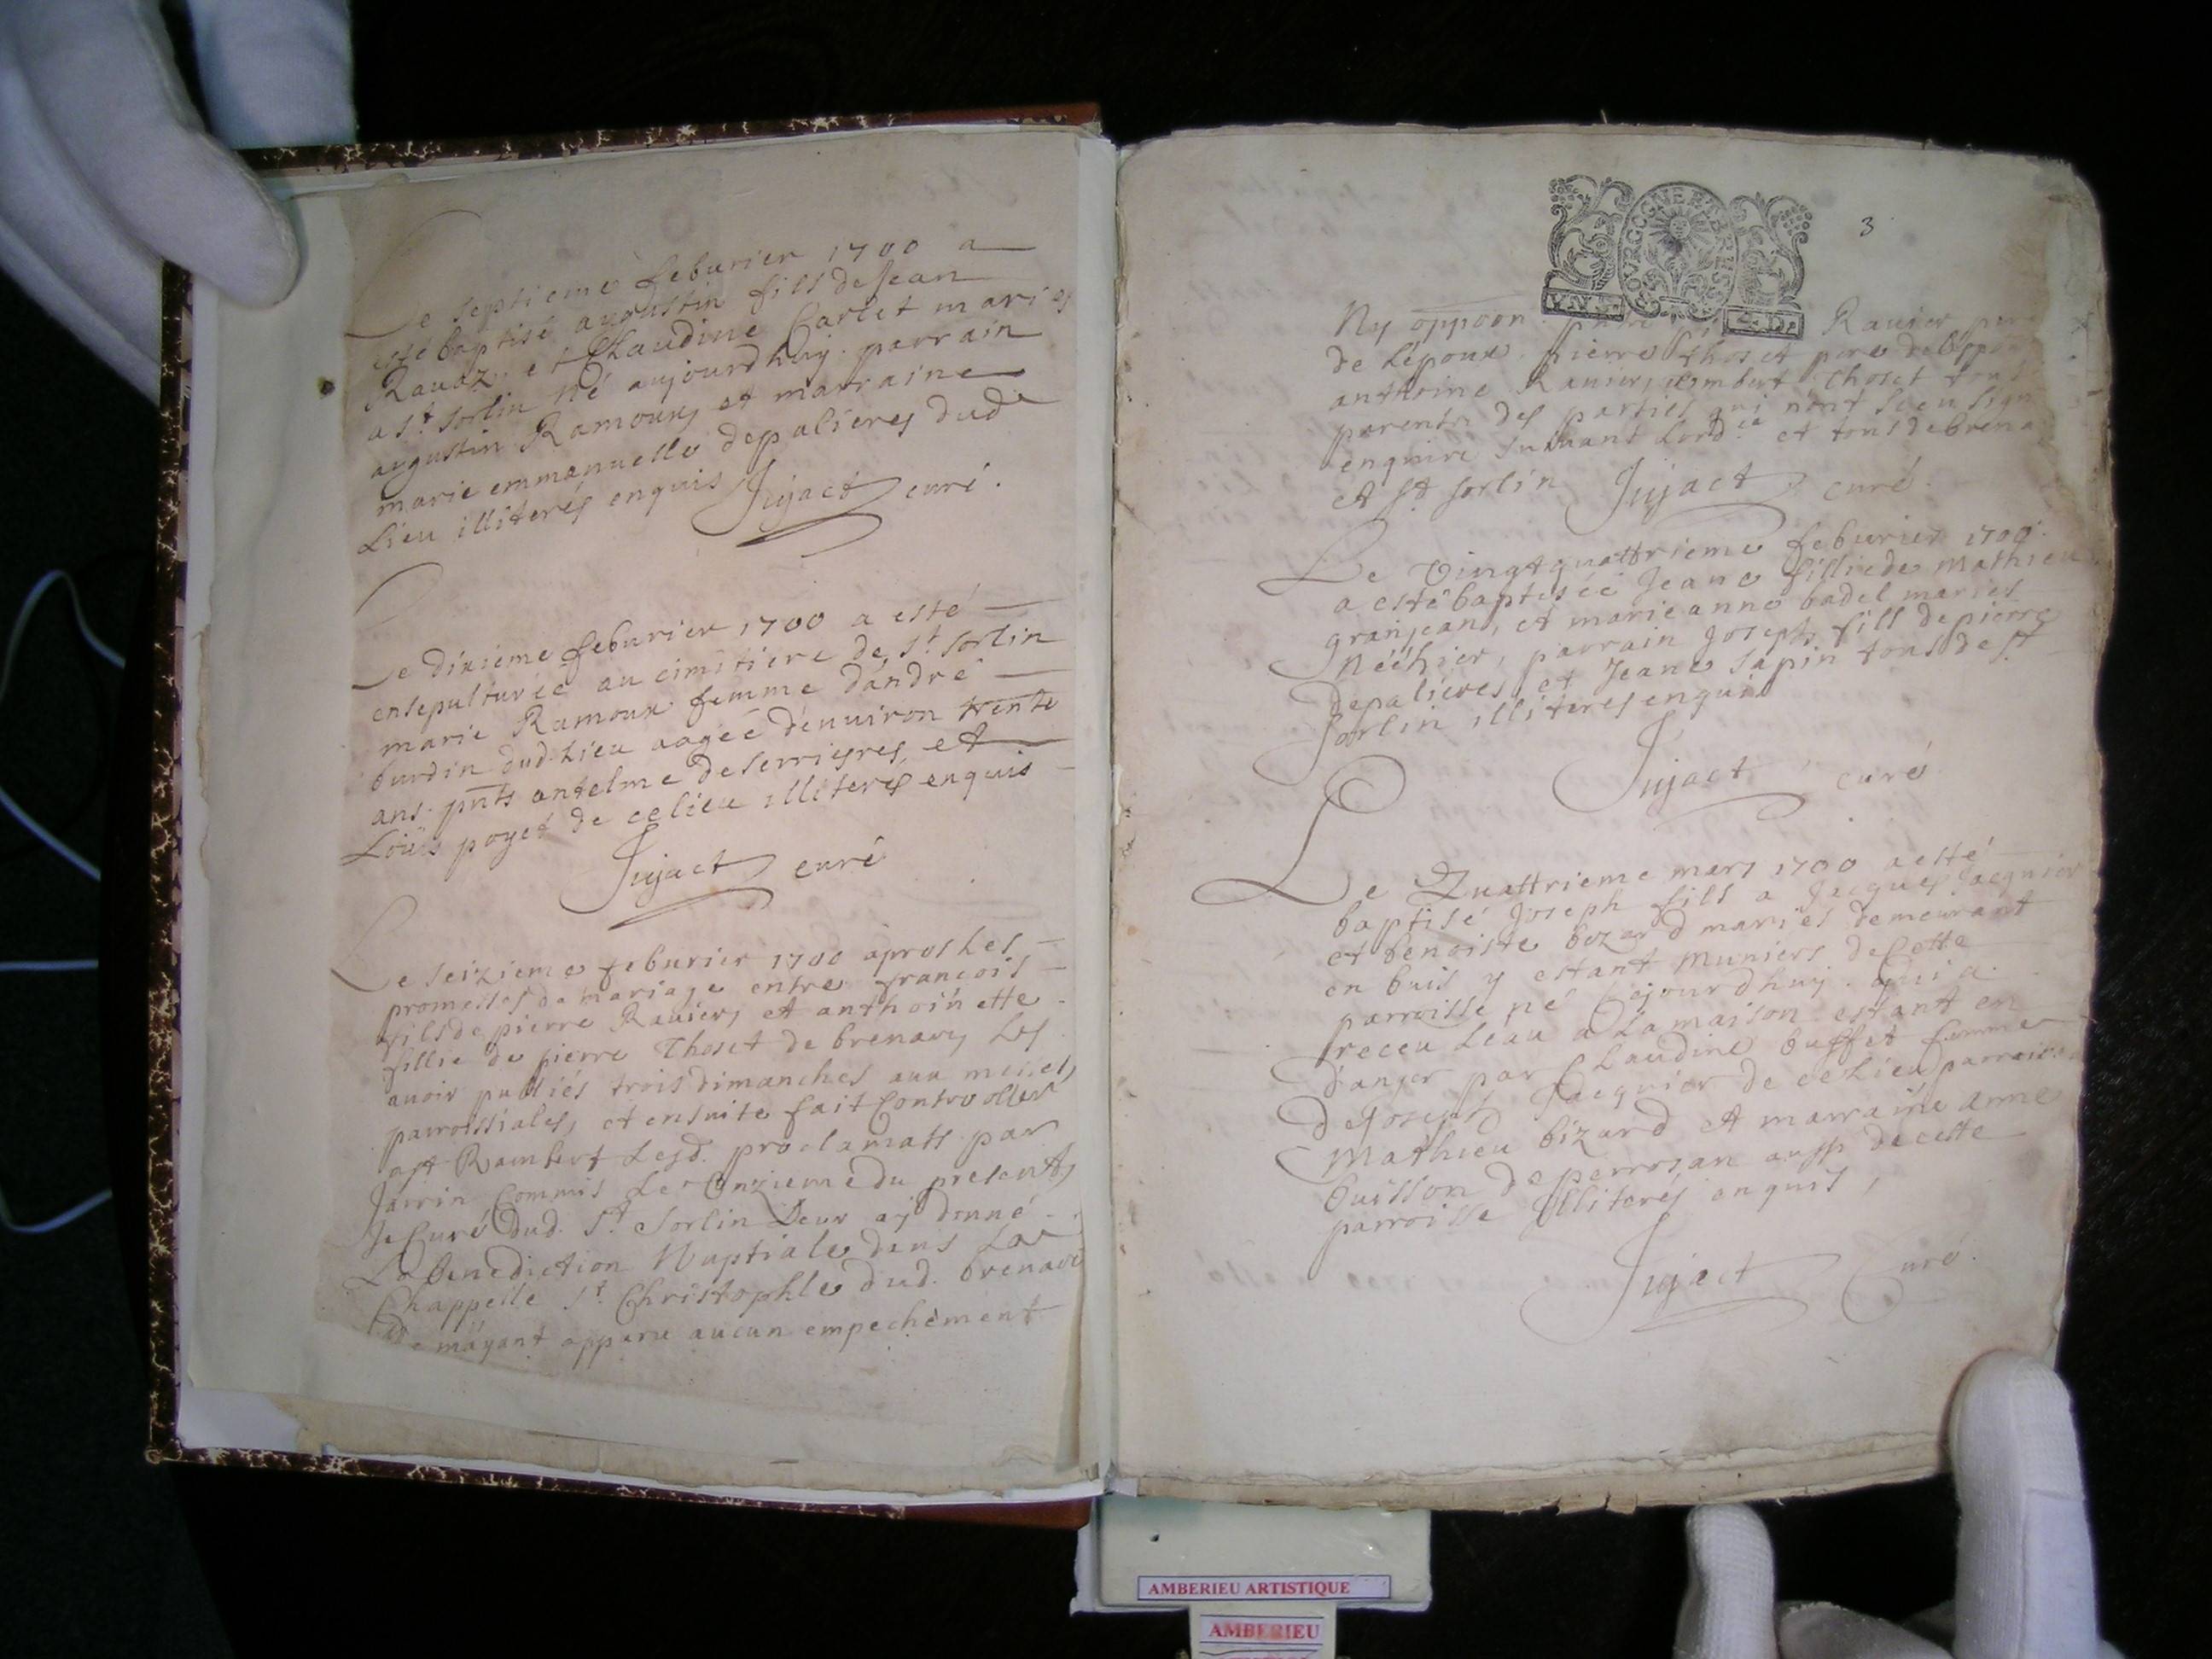 Le septieme feburier 1700 a
esté baptisé augustin fils de Jean
Rauoz et Claudine Carlet mariés
a st. sorlin né aujourdhuy. parrain
augustin Ramoux et marraine
marie emmanuelle depalieres dud.
Lieu illiterés enquis Jujact curé.
Le dixieme feburier 1700 a esté
ensepulturée au cimitiere de st. sorlin
marie Ramoux femme dandré
burdin dud. Lieu aagée denuiron trente
ans. pnts antelme deserrieres et
Loüis poyet de ce lieu illiterés enquis
Jujact curé
Le seizieme feburier 1700 apres Les
promesses de mariage entre francois
fils de pierre Rauier, et anthoinette
fillie de pierre Thoset de brenaz, Les
auoir publiés trois dimanches aux messes
parroissiales, et ensuite fait Controoller
a st Rambert Lesd. proclamats par
Jarrin Commis Le onzieme du present,
Je Curé dud. st. sorlin Leur ay donné
La benediction Nuptiale dans La
Chappelle st. Christophle dud. brenaz
Ne mäyant apparu aucun empechement
BOURGOGNE ET BRESSE
3
VN S. 4. D.
Ny oppoon Rauier pere
de Lépoux. pierre Thoset pere de
anthoine Rauier, Thoset tous
parents des parties qui nont sceu sign
enquire suiuant Lord.ce et tous de brena
et st. sorlin Jujact curé.
Le Vingtquattrieme feburier 1700.
a esté baptisée Jeane fillie de Mathieu
granjean, et marieanne badel mariés
parrain Joseph fils de pierre
depalieres et Jeane sapin tous de st.
sorlin illiteres enquis
Jujact curé
Le Quattrieme mars 1700 a esté
baptisé Joseph fils a Jacques Jacquier
et benoiste bizard mariés demeurant
en buis y estant muniers de Cette
parroisse né ajourdhuy. qui a
receu Leau a La maison estant en
danger par Claudine buffet femme
de Joseph Jacquier de ce Lieu parrain
Mathieu bizard et marraine anne
buisson deperrosan aussi de cette
parroisse illiterés enquis,
Jujact Curé.
AMBERIEU ARTISTIQUE
AMBERIEU